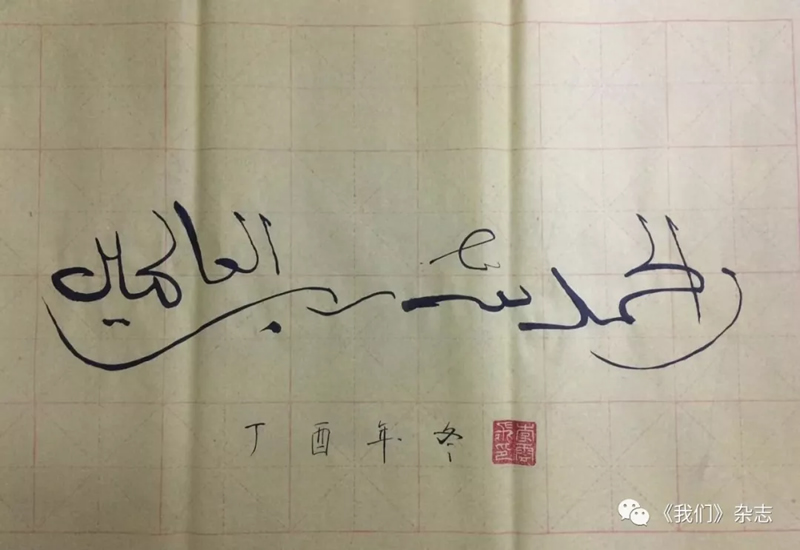 الحمد لله رب العالمين
丁酉年冬
《我们》杂志